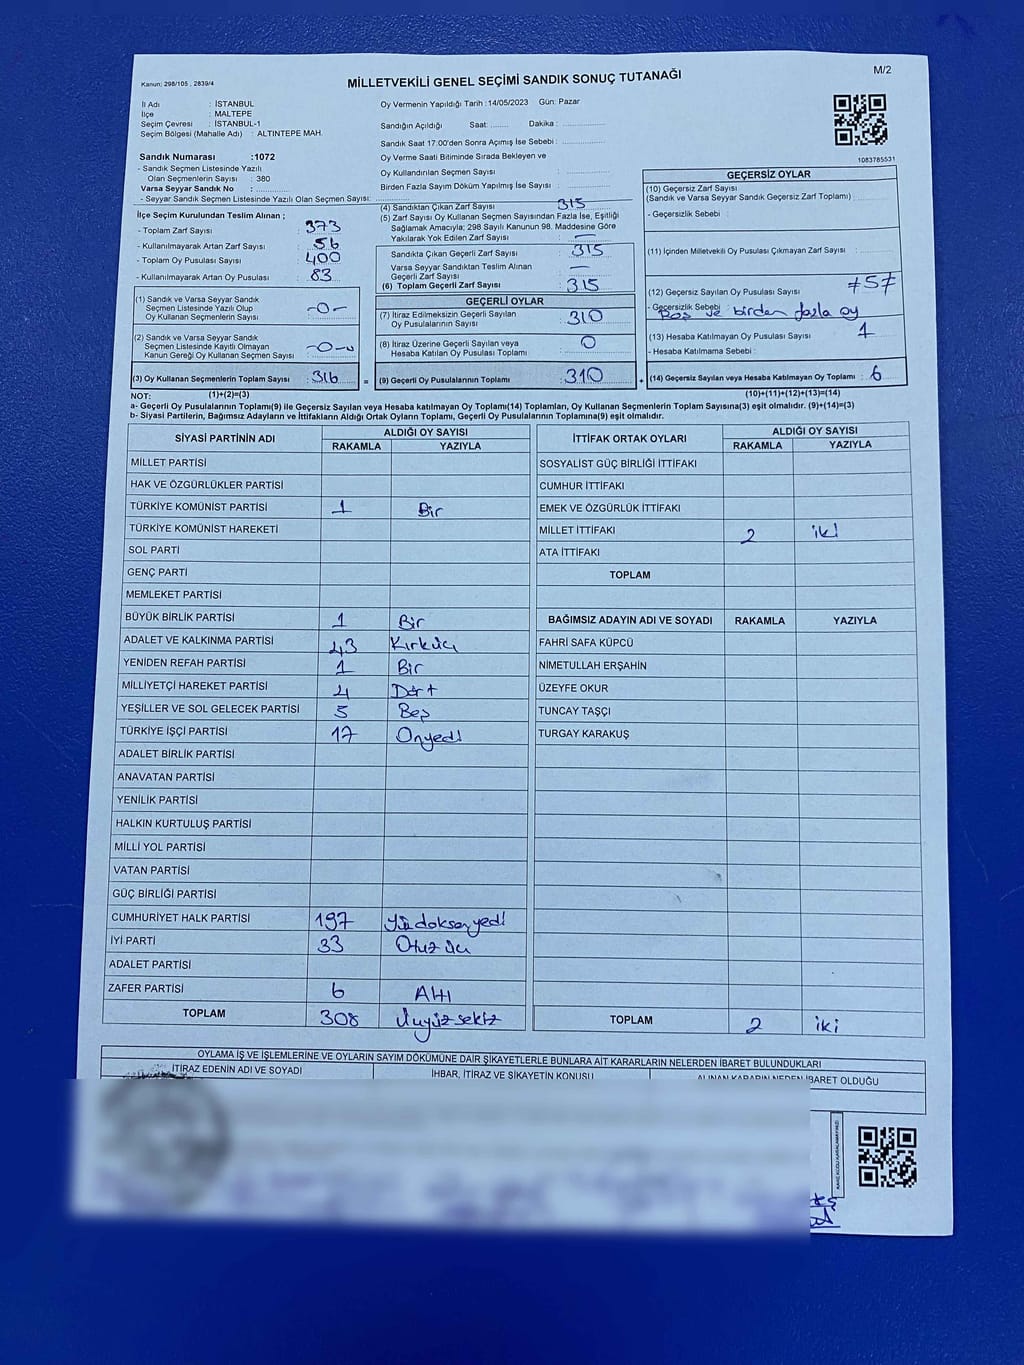 Kanun: 298/105 , 2839/4
MİLLETVEKİLİ GENEL SEÇİMİ SANDIK SONUÇ TUTANAĞI
M/2
İl Adı : İSTANBUL
İlçe : MALTEPE
Seçim Çevresi : İSTANBUL-1
Seçim Bölgesi (Mahalle Adı) : ALTINTEPE MAH.
Sandık Numarası :1072
- Sandık Seçmen Listesinde Yazılı
Olan Seçmenlerin Sayısı : 380
Varsa Seyyar Sandık No : ............
- Seyyar Sandık Seçmen Listesinde Yazılı Olan Seçmen Sayısı: ............
Oy Vermenin Yapıldığı Tarih :14/05/2023 Gün: Pazar
Sandığın Açıldığı Saat: ....... Dakika : ............
Sandık Saat 17:00'den Sonra Açımış İse Sebebi : ............
Oy Verme Saati Bitiminde Sırada Bekleyen ve
Oy Kullandırılan Seçmen Sayısı : ............
Birden Fazla Sayım Döküm Yapılmış İse Sayısı : ............
1083785531
İlçe Seçim Kurulundan Teslim Alınan ;
- Toplam Zarf Sayısı : 373
- Kullanılmayarak Artan Zarf Sayısı : 56
- Toplam Oy Pusulası Sayısı : 400
- Kullanılmayarak Artan Oy Pusulası : 83
(1) Sandık ve Varsa Seyyar Sandık
Seçmen Listesinde Yazılı Olup
Oy Kullanan Seçmenlerin Sayısı : -0-
(2) Sandık ve Varsa Seyyar Sandık
Seçmen Listesinde Kayıtlı Olmayan
Kanun Gereği Oy Kullanan Seçmen Sayısı : -0-
(3) Oy Kullanan Seçmenlerin Toplam Sayısı : 316
(4) Sandıktan Çıkan Zarf Sayısı : 315
(5) Zarf Sayısı Oy Kullanan Seçmen Sayısından Fazla İse, Eşitliği
Sağlamak Amacıyla; 298 Sayılı Kanunun 98. Maddesine Göre
Yakılarak Yok Edilen Zarf Sayısı : —
Sandıkta Çıkan Geçerli Zarf Sayısı : 315
Varsa Seyyar Sandıktan Teslim Alınan
Geçerli Zarf Sayısı : —
(6) Toplam Geçerli Zarf Sayısı : 315
GEÇERLİ OYLAR
(7) İtiraz Edilmeksizin Geçerli Sayılan
Oy Pusulalarının Sayısı : 310
(8) İtiraz Üzerine Geçerli Sayılan veya
Hesaba Katılan Oy Pusulası Toplamı : 0
= (9) Geçerli Oy Pusulalarının Toplamı : 310
GEÇERSİZ OYLAR
(10) Geçersiz Zarf Sayısı
(Sandık ve Varsa Seyyar Sandık Geçersiz Zarf Toplamı) :
- Geçersizlik Sebebi :
(11) İçinden Milletvekili Oy Pusulası Çıkmayan Zarf Sayısı :
(12) Geçersiz Sayılan Oy Pusulası Sayısı : 5
- Geçersizlik Sebebi : Boş ve birden fazla oy
(13) Hesaba Katılmayan Oy Pusulası Sayısı : 1
- Hesaba Katılmama Sebebi :
+ (14) Geçersiz Sayılan veya Hesaba Katılmayan Oy Toplamı : 6
NOT: (1)+(2)=(3) (10)+(11)+(12)+(13)=(14)
a- Geçerli Oy Pusulalarının Toplamı(9) ile Geçersiz Sayılan veya Hesaba katılmayan Oy Toplamı(14) Toplamları, Oy Kullanan Seçmenlerin Toplam Sayısına(3) eşit olmalıdır. (9)+(14)=(3)
b- Siyasi Partilerin, Bağımsız Adayların ve İttifakların Aldığı Ortak Oyların Toplamı, Geçerli Oy Pusulalarının Toplamına(9) eşit olmalıdır.
SİYASİ PARTİNİN ADI ALDIĞI OY SAYISI
RAKAMLA YAZIYLA
MİLLET PARTİSİ
HAK VE ÖZGÜRLÜKLER PARTİSİ
TÜRKİYE KOMÜNİST PARTİSİ 1 Bir
TÜRKİYE KOMÜNİST HAREKETİ
SOL PARTİ
GENÇ PARTİ
MEMLEKET PARTİSİ
BÜYÜK BİRLİK PARTİSİ 1 Bir
ADALET VE KALKINMA PARTİSİ 43 Kırküç
YENİDEN REFAH PARTİSİ 1 Bir
MİLLİYETÇİ HAREKET PARTİSİ 4 Dört
YEŞİLLER VE SOL GELECEK PARTİSİ 5 Beş
TÜRKİYE İŞÇİ PARTİSİ 17 Onyedi
ADALET BİRLİK PARTİSİ
ANAVATAN PARTİSİ
YENİLİK PARTİSİ
HALKIN KURTULUŞ PARTİSİ
MİLLİ YOL PARTİSİ
VATAN PARTİSİ
GÜÇ BİRLİĞİ PARTİSİ
CUMHURİYET HALK PARTİSİ 197 Yüzdoksanyedi
İYİ PARTİ 33 Otuzüç
ADALET PARTİSİ
ZAFER PARTİSİ 6 Altı
TOPLAM 308 Üçyüzsekiz
İTTİFAK ORTAK OYLARI ALDIĞI OY SAYISI
RAKAMLA YAZIYLA
SOSYALİST GÜÇ BİRLİĞİ İTTİFAKI
CUMHUR İTTİFAKI
EMEK VE ÖZGÜRLÜK İTTİFAKI
MİLLET İTTİFAKI 2 iki
ATA İTTİFAKI
TOPLAM
BAĞIMSIZ ADAYIN ADI VE SOYADI RAKAMLA YAZIYLA
FAHRİ SAFA KÜPCÜ
NİMETULLAH ERŞAHİN
ÜZEYFE OKUR
TUNCAY TAŞÇI
TURGAY KARAKUŞ
TOPLAM 2 iki
OYLAMA İŞ VE İŞLEMLERİNE VE OYLARIN SAYIM DÖKÜMÜNE DAİR ŞİKAYETLERLE BUNLARA AİT KARARLARIN NELERDEN İBARET BULUNDUKLARI
İTİRAZ EDENİN ADI VE SOYADI İHBAR, İTİRAZ VE ŞİKAYETİN KONUSU ALINAN KARARIN NEDEN İBARET OLDUĞU